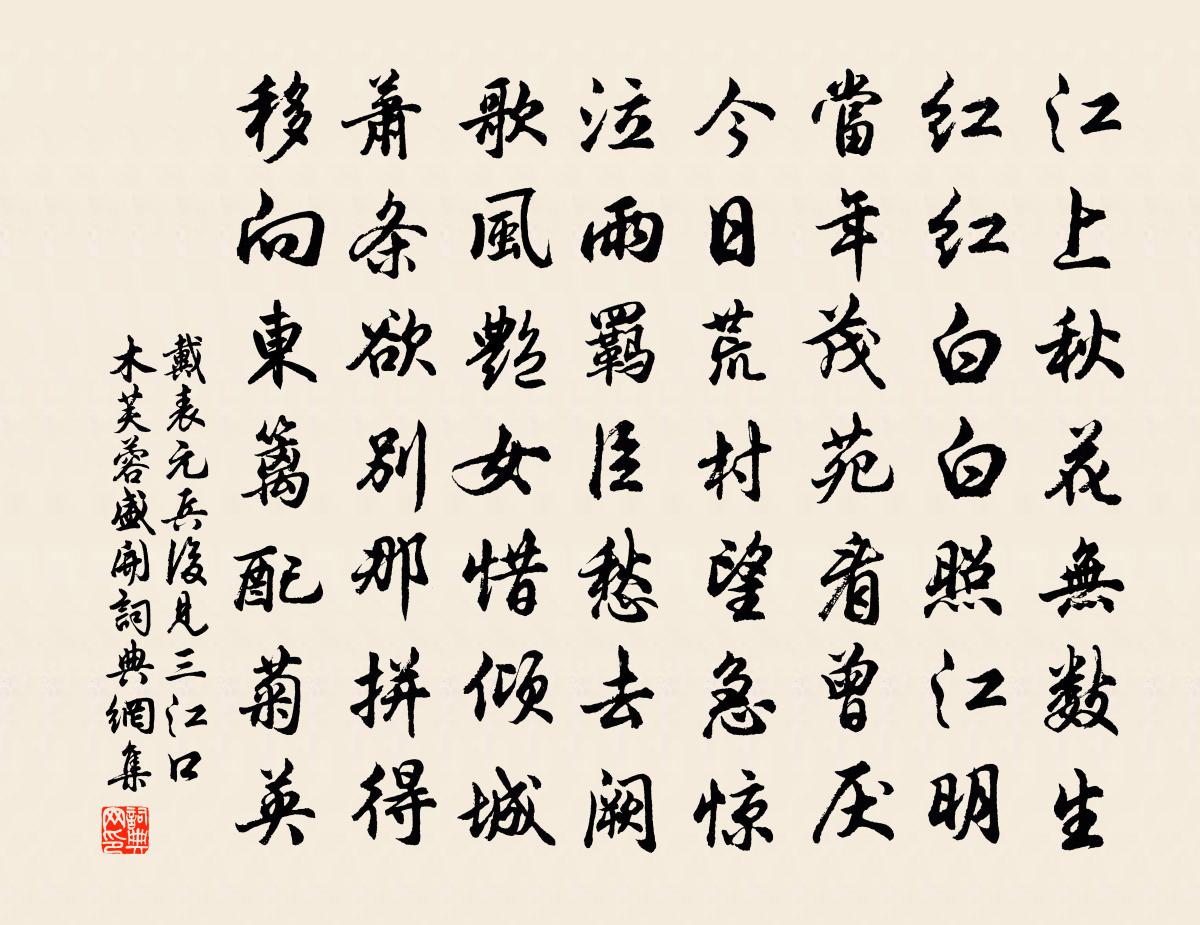 江上秋花無數生
红红白白照江明
當年茂苑看曾厌
今日荒村望急惊
泣雨羁臣愁去阙
歌風艷女惜倾城
萧条欲别那拼得
移向東篱配菊英
戴表元兵後见三江口
木芙蓉盛開詞典網集
詞典
网印